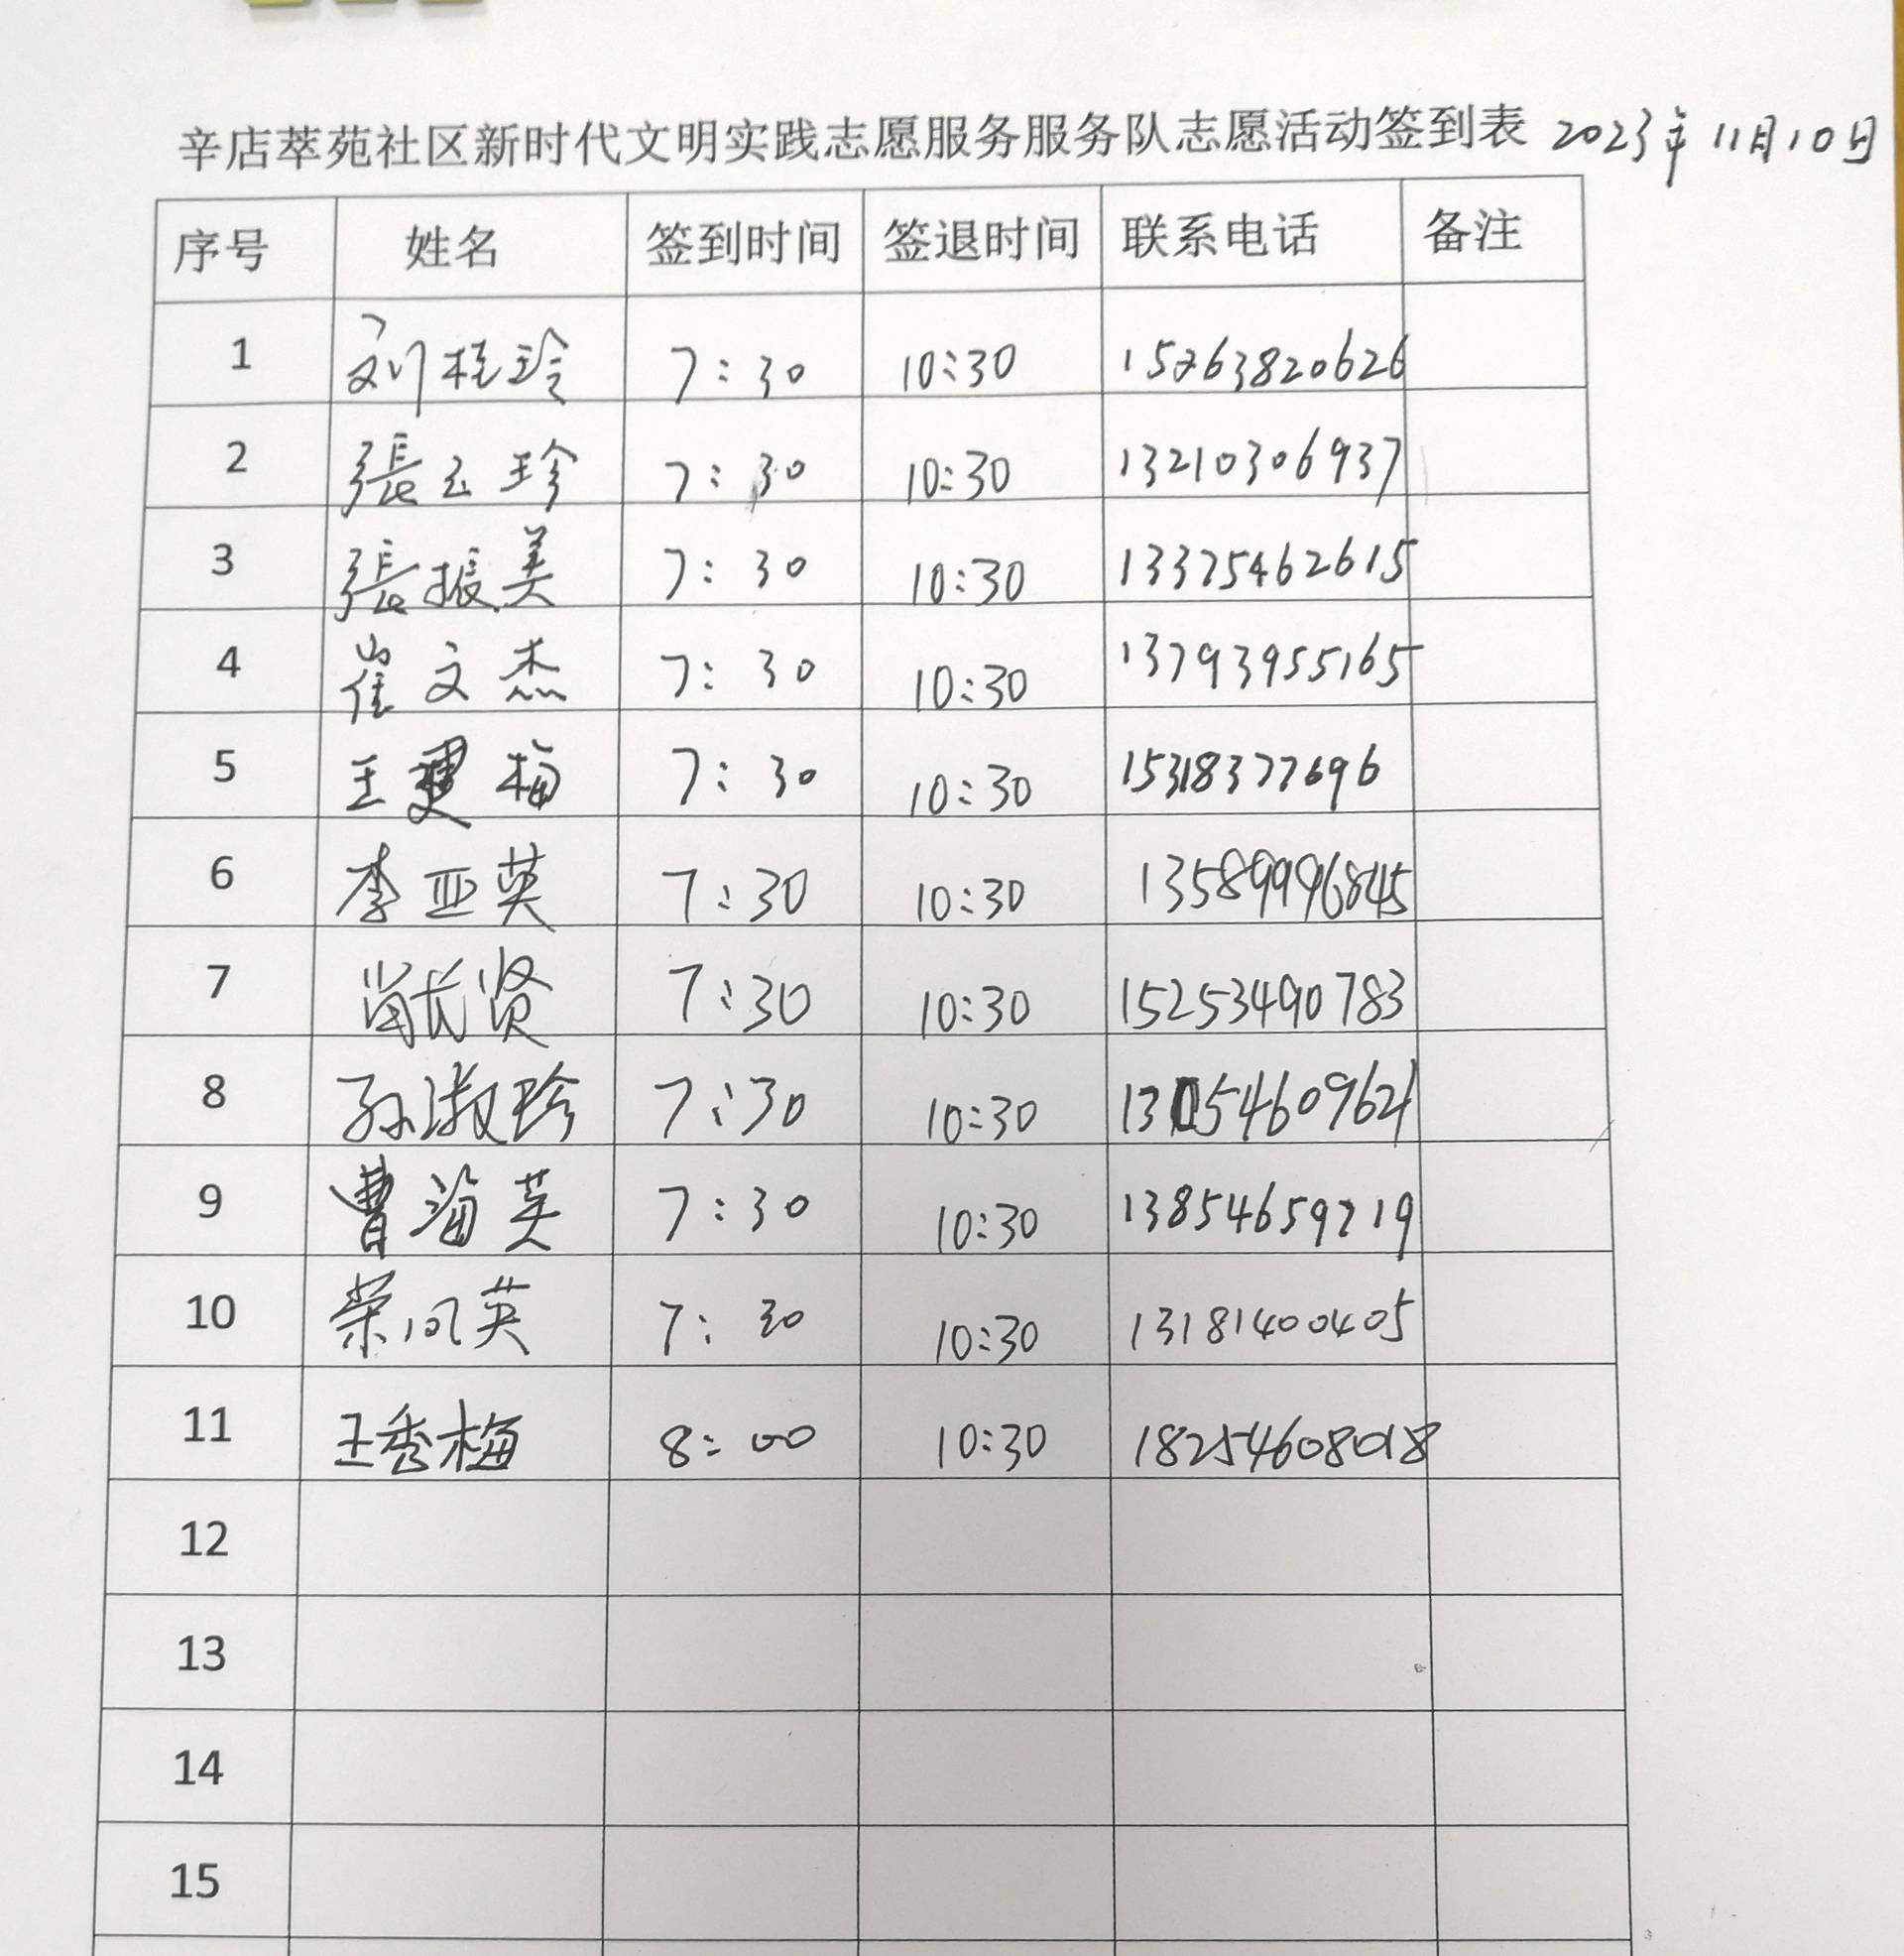 辛店萃苑社区新时代文明实践志愿服务服务队志愿活动签到表 2023年11月10日
序号 姓名 签到时间 签退时间 联系电话 备注
1 刘桂玲 7:30 10:30 15263820626
2 張云珍 7:30 10:30 13210306937
3 張振美 7:30 10:30 13375462615
4 崔文杰 7:30 10:30 13793955165
5 王更梅 7:30 10:30 15318377696
6 李亚英 7:30 10:30 13589996845
7 7:30 10:30 15253490783
8 孙淑珍 7:30 10:30
9 曹海英 7:30 10:30 13854659719
10 荣凤英 7:30 10:30 13181400405
11 王秀梅 8:00 10:30 18254608018
12
13
14
15